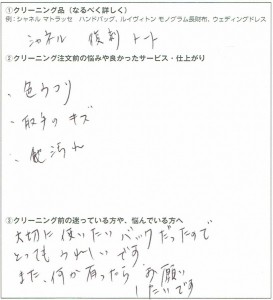 ①クリーニング品（なるべく詳しく）
例：シャネル マトラッセ ハンドバッグ、ルイヴィトン モノグラム長財布、ウェディングドレス
シャネル 復刻 トート
②クリーニング注文前の悩みや良かったサービス・仕上がり
・色うつり
・取手のキズ
・汚れ
③クリーニング前の迷っている方や、悩んでいる方へ
大切に使いたいバックだったので
とってもうれしいです
また、何か有ったらお願い
したいです